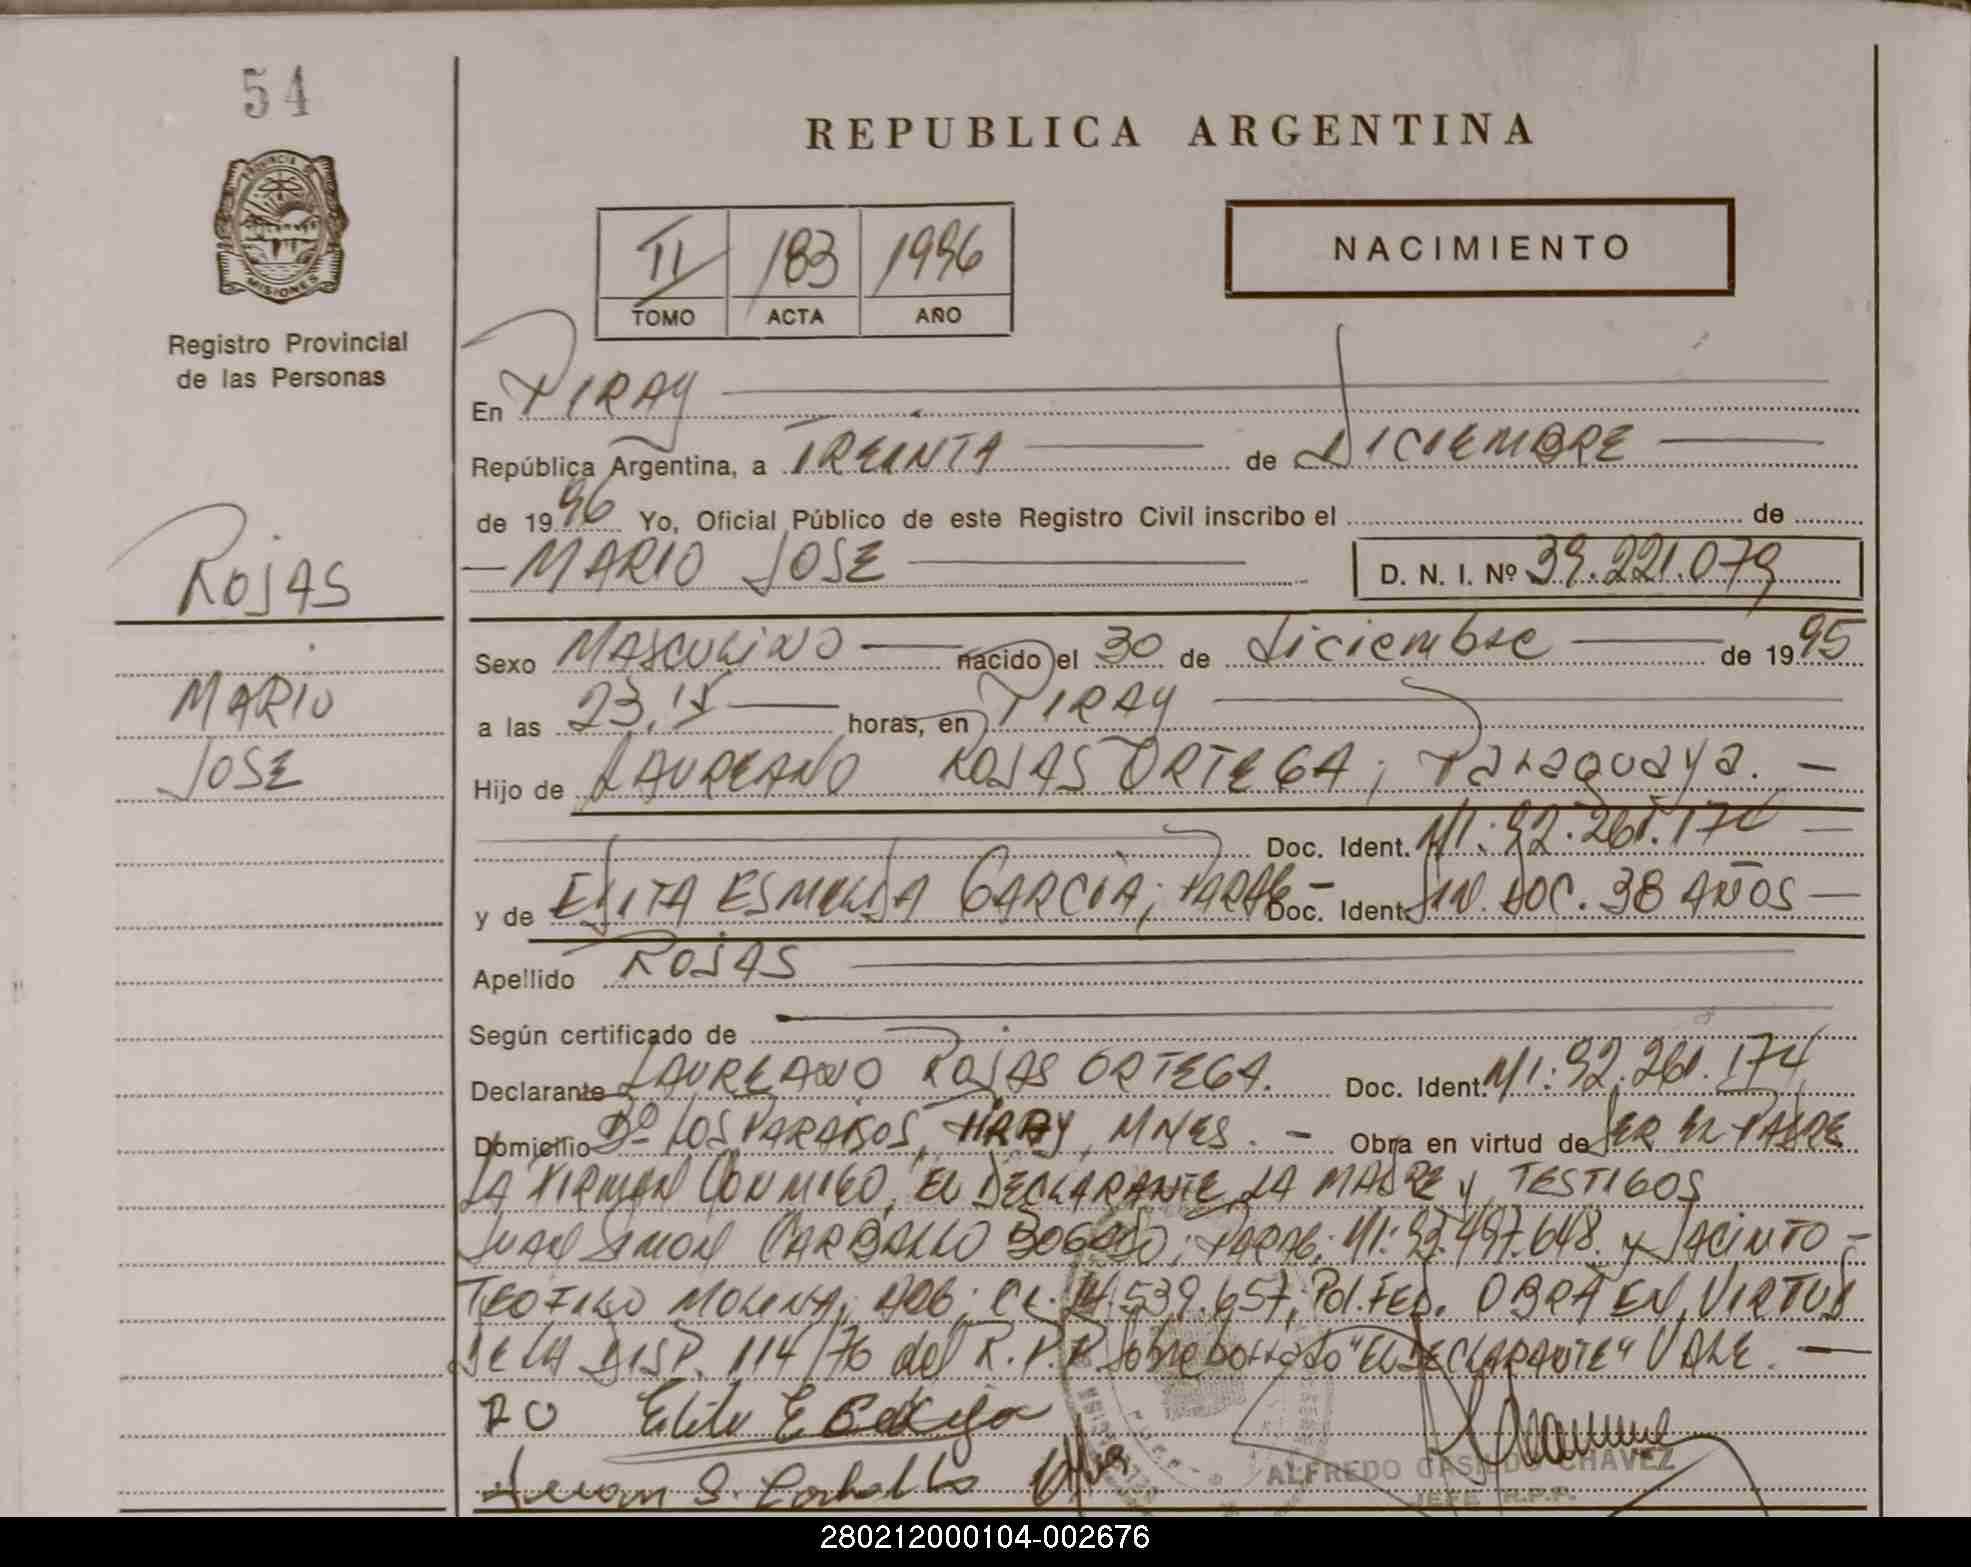 54
REPUBLICA ARGENTINA
PROVINCIA DE MISIONES
II 183 1996
TOMO ACTA AÑO
NACIMIENTO
Registro Provincial
de las Personas
En PIRAY
República Argentina, a TREINTA de DICIEMBRE
de 1996 Yo, Oficial Público de este Registro Civil inscribo el de
MARIO JOSE D. N. I. Nº 39.221.079
ROJAS
MARIO
JOSE
Sexo MASCULINO nacido el 30 de diciembre de 1995
a las 23,15 horas, en PIRAY
Hijo de LAUREANO ROJAS ORTEGA; Paraguaya.
Doc. Ident. MI: 92.261.174
y de ELITA ESMELDA GARCIA; PARAG Doc. Ident. SIN. DOC. 38 AÑOS
Apellido ROJAS
Según certificado de
Declarante LAUREANO ROJAS ORTEGA. Doc. Ident. MI: 92.261.174
Domicilio Bº LOS PARAISOS, PIRAY, MNES. Obra en virtud de SER EL PADRE
LA FIRMAN CONMIGO, EL DECLARANTE, LA MADRE y TESTIGOS
JUAN SIMON CARBALLO BOGADO; PARAG; MI: 92.497.648. y JACINTO
TEOFILO MOLINA; ARG; CI. 14.539.657; Pol. FED. OBRA EN VIRTUD
DE LA DISP. 114/76 del R.P.P. Sobreborrado "EL DECLARANTE" VALE.
Juan S. Carballo
ALFREDO CASILDO CHAVEZ
JEFE R.P.P.
280212000104-002676